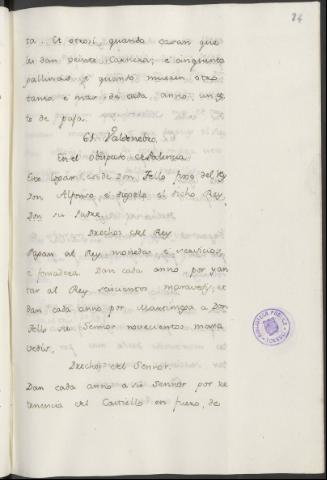 84
ta. Et otrosi, quando casan que
les dan veinte Carneros; e cinquenta
gallinas, e quando mueren otro
tanto e mas de cada anno un
to de paja.
El Valdenebro.
En el obispado de Palencia.
Este logar es de Don Tello fijo del Rey
Don Alfonso, e diogelo el dicho Rey
Don su Padre.
Derechos del Rey.
Pagan al Rey monedas e servicios
e fonsadera. Dan cada anno por yan
tar al Rey seicientos maravedis; et
dan cada anno por Martiniega a Don
Tello su Sennor novecientos mara
vedis.
Derechos del Sennor.
Dan cada anno a su Sennor por re
tenencia del Castiello en fuero, de
BIBLIOTECA PUBLICA
TOLEDO